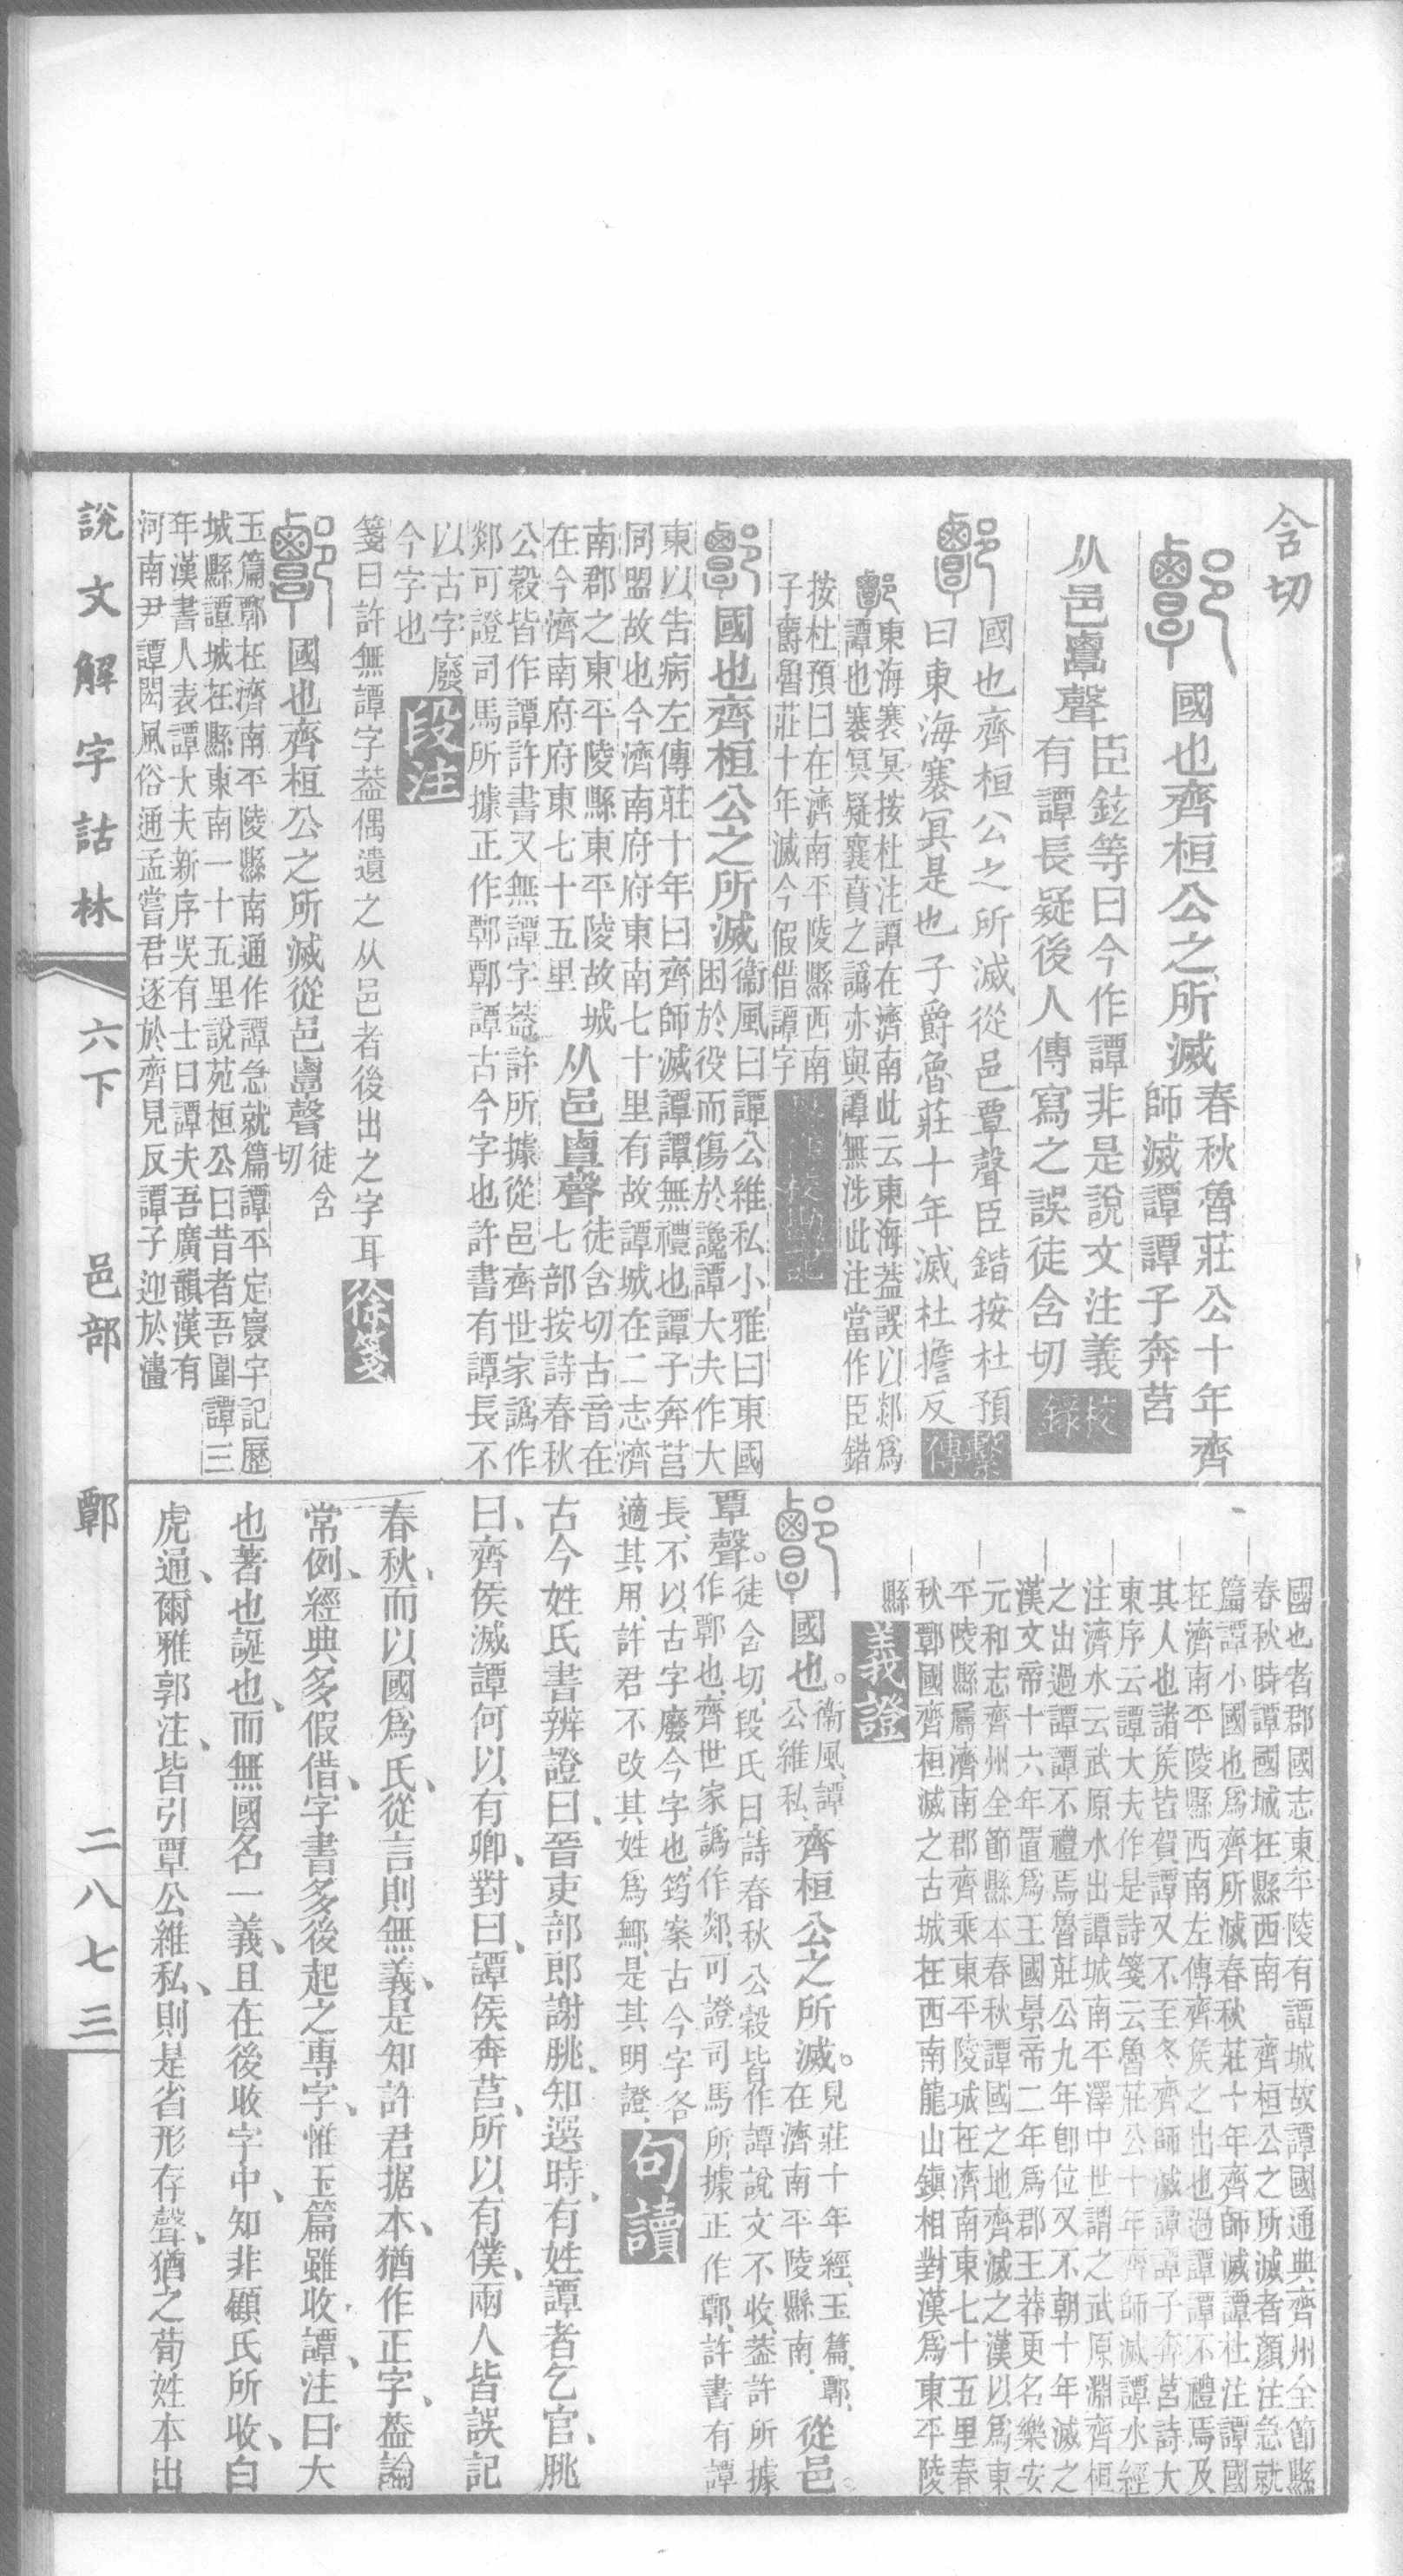 含切
國也齊桓公之所滅
春秋魯莊公十年齊
師滅譚譚子奔莒
从邑𪉷聲
臣鉉等曰今作譚非是說文注義
有譚長疑後人傳寫之誤徒含切
校錄
國也齊桓公之所滅從邑覃聲臣鍇按杜預
曰東海褰冥是也子爵魯莊十年滅杜擔反
繫傳
東海褰冥按杜注譚在濟南此云東海葢誤以郯爲
譚也褰冥疑襄賁之譌亦與譚無涉此注當作臣鍇
按杜預曰在濟南平陵縣西南
子爵魯莊十年滅今假借譚字
國也齊桓公之所滅
衞風曰譚公維私小雅曰東國
困於役而傷於讒譚大夫作大
東以告病左傳莊十年曰齊師滅譚譚無禮也譚子奔莒
同盟故也今濟南府府東南七十里有故譚城在二志濟
南郡之東平陵縣東平陵故城
在今濟南府府東七十五里
从邑𪉷聲
徒含切古音在
七部按詩春秋
公穀皆作譚許書又無譚字葢許所據從邑齊世家譌作
郯可證司馬所據正作鄲鄲譚古今字也許書有譚長不
以古字廢
今字也
段注
箋曰許無譚字葢偶遺之从邑者後出之字耳
徐箋
國也齊桓公之所滅從邑𪉷聲
徒含
切
玉篇鄲在濟南平陵縣南通作譚急就篇譚平定寰宇記歷
城縣譚城在縣東南一十五里說苑桓公曰昔者吾圍譚三
年漢書人表譚大夫新序吳有士曰譚夫吾廣韻漢有
河南尹譚閎風俗通孟嘗君逐於齊見反譚子迎於澅
國也者郡國志東平陵有譚城故譚國通典齊州全節縣
春秋時譚國城在縣西南 齊桓公之所滅者顏注急就
篇譚小國也爲齊所滅春秋莊十年齊師滅譚杜注譚國
在濟南平陵縣西南左傳齊矦之出也過譚譚不禮焉及
其人也諸矦皆賀譚又不至冬齊師滅譚譚子奔莒詩大
東序云譚大夫作是詩箋云魯莊公十年齊師滅譚水經
注濟水云武原水出譚城南平澤中世謂之武原淵齊桓
之出過譚譚不禮焉魯莊公九年卽位又不朝十年滅之
漢文帝十六年置爲王國景帝二年爲郡王莽更名樂安
元和志齊州全節縣本春秋譚國之地齊滅之漢以爲東
平陵縣屬濟南郡齊乘東平陵城在濟南東七十五里春
秋鄲國齊桓滅之古城在西南龍山鎭相對漢爲東平陵
縣
義證
國也。
衞風、譚
公維私、
齊桓公之所滅。
見莊十年經、玉篇、鄲、
在濟南平陵縣南、
從邑。
覃聲。
徒含切、段氏曰、詩春秋公穀皆作譚說文不收、葢許所據
作鄲也、齊世家譌作郯、可證司馬所據正作鄲、許書有譚
長、不以古字廢今字也、筠案古今字各
適其用、許君不改其姓爲鄲、是其明證、
句讀
古今姓氏書辨證曰、晉吏部郎謝朓、知選時、有姓譚者乞官、朓
曰、齊侯滅譚何以有卿、對曰、譚侯奔莒、所以有僕、兩人皆誤記
春秋、而以國爲氏、從言則無義、是知許君据本、猶作正字、葢論
常例、經典多假借、字書多後起之專字、惟玉篇雖收譚、注曰大
也著也誕也、而無國名一義、且在後收字中、知非顧氏所收、白
虎通、爾雅郭注、皆引覃公維私、則是省形存聲、猶之荀姓本出
說文解字詁林
六下
邑部
鄲
二八七三